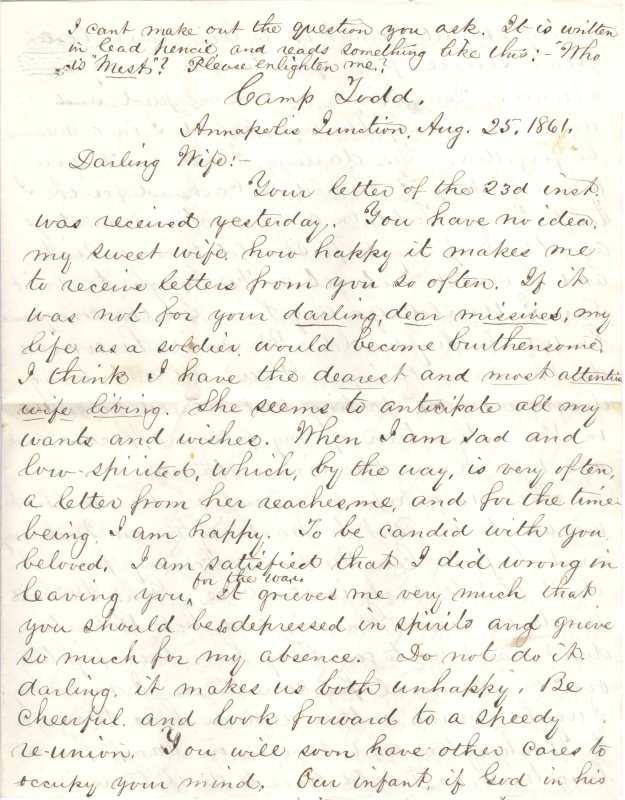 I cant make out the question you ask. It is written
in lead pencil and reads something like this:- "Who
is "Mist"? Please enlighten me?
Camp Todd.
Annapolis Junction, Aug. 25, 1861.
Darling Wife:-
Your letter of the 23d inst.
was received yesterday. You have no idea,
my sweet wife, how happy it makes me
to receive letters from you so often. If it
was not for your darling, dear missives, my
life as a soldier would become burthensome.
I think I have the dearest and most attentive
wife living. She seems to anticipate all my
wants and wishes. When I am sad and
low-spirited, which, by the way, is very often,
a letter from her reaches me, and for the time
being, I am happy. To be candid with you,
beloved, I am satisfied that I did wrong in
leaving you, for the war. It grieves me very much that
you should be depressed in spirits and grieve
so much for my absence. Do not do it
darling, it makes us both unhappy. Be
cheerful and look forward to a speedy
re-union. You will soon have other cares to
occupy your mind. Our infant, if God in his